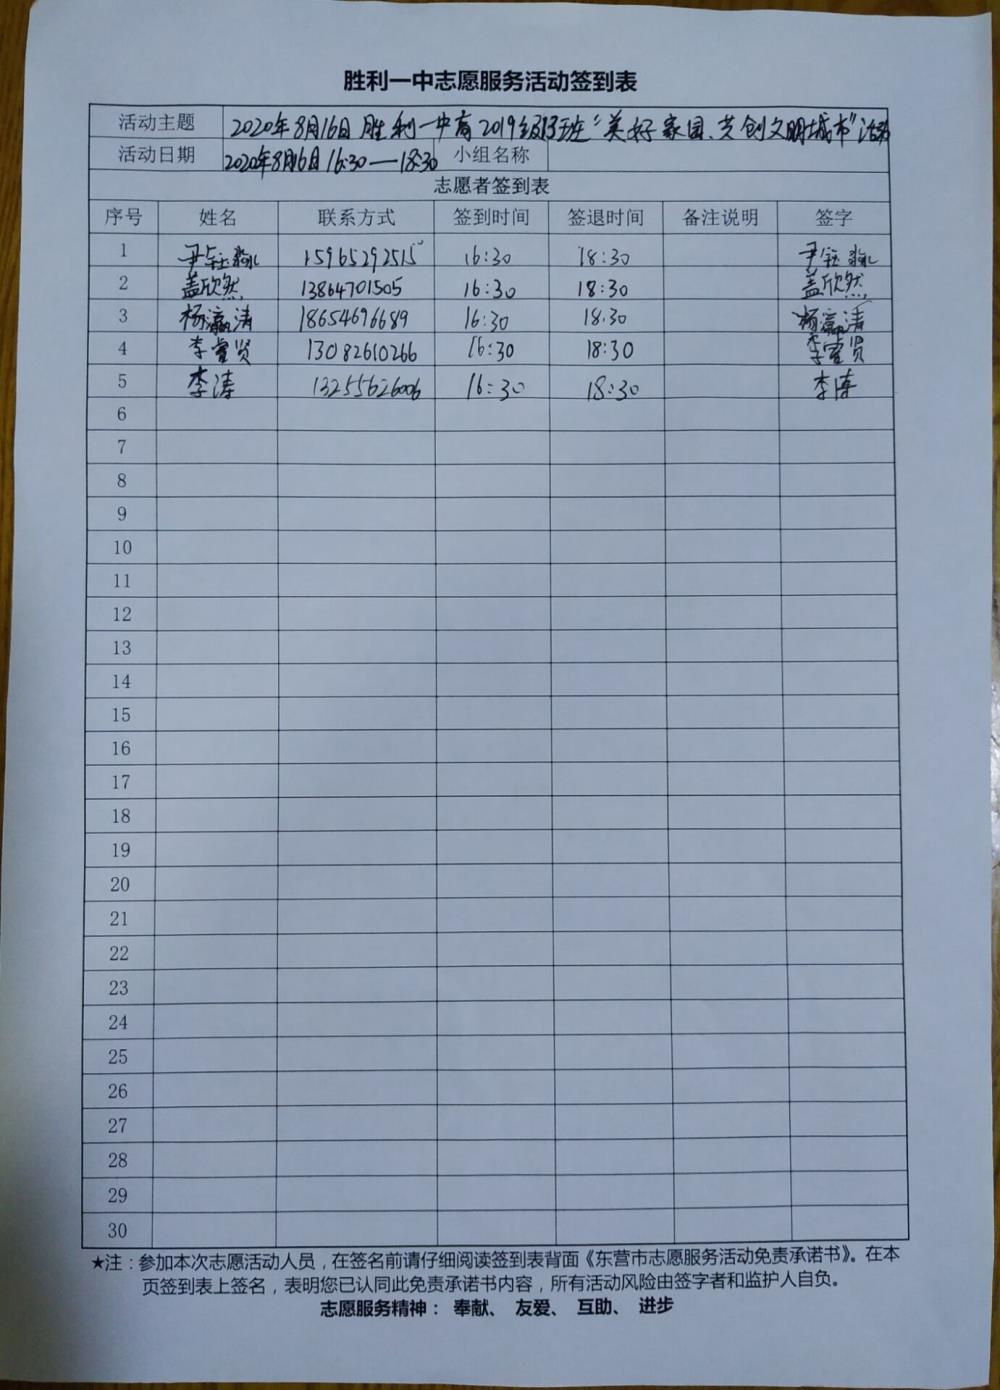 胜利一中志愿服务活动签到表
活动主题 2020年8月16日胜利一中高2019级13班“美好家园、共创文明城市”活动
活动日期 2020年8月16日 16:30—18:30 小组名称
志愿者签到表
序号 姓名 联系方式 签到时间 签退时间 备注说明 签字
1 尹钰 15965292515 16:30 18:30 尹钰
2 盖欣然 13864701505 16:30 18:30 盖欣然
3 杨瀛清 18654696689 16:30 18:30 杨瀛清
4 李睿贤 13082610266 16:30 18:30 李睿贤
5 李涛 13255626006 16:30 18:30 李涛
6
7
8
9
10
11
12
13
14
15
16
17
18
19
20
21
22
23
24
25
26
27
28
29
30
★注：参加本次志愿活动人员，在签名前请仔细阅读签到表背面《东营市志愿服务活动免责承诺书》。在本
页签到表上签名，表明您已认同此免责承诺书内容，所有活动风险由签字者和监护人自负。
志愿服务精神： 奉献、 友爱、 互助、 进步